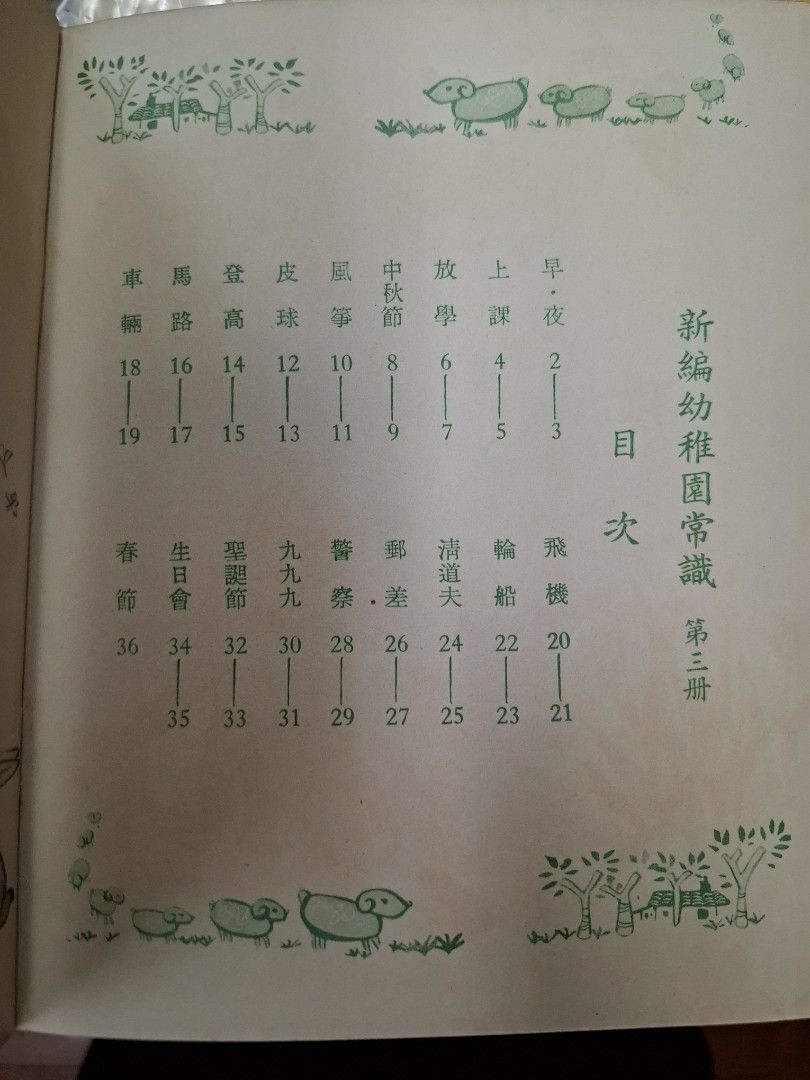 新編幼稚園常識 第三册
目次
早·夜 2—3
上課 4—5
放學 6—7
中秋節 8—9
風箏 10—11
皮球 12—13
登高 14—15
馬路 16—17
車輛 18—19
飛機 20—21
輪船 22—23
清道夫 24—25
郵差 26—27
警察 28—29
九九九 30—31
聖誕節 32—33
生日會 34—35
春節 36